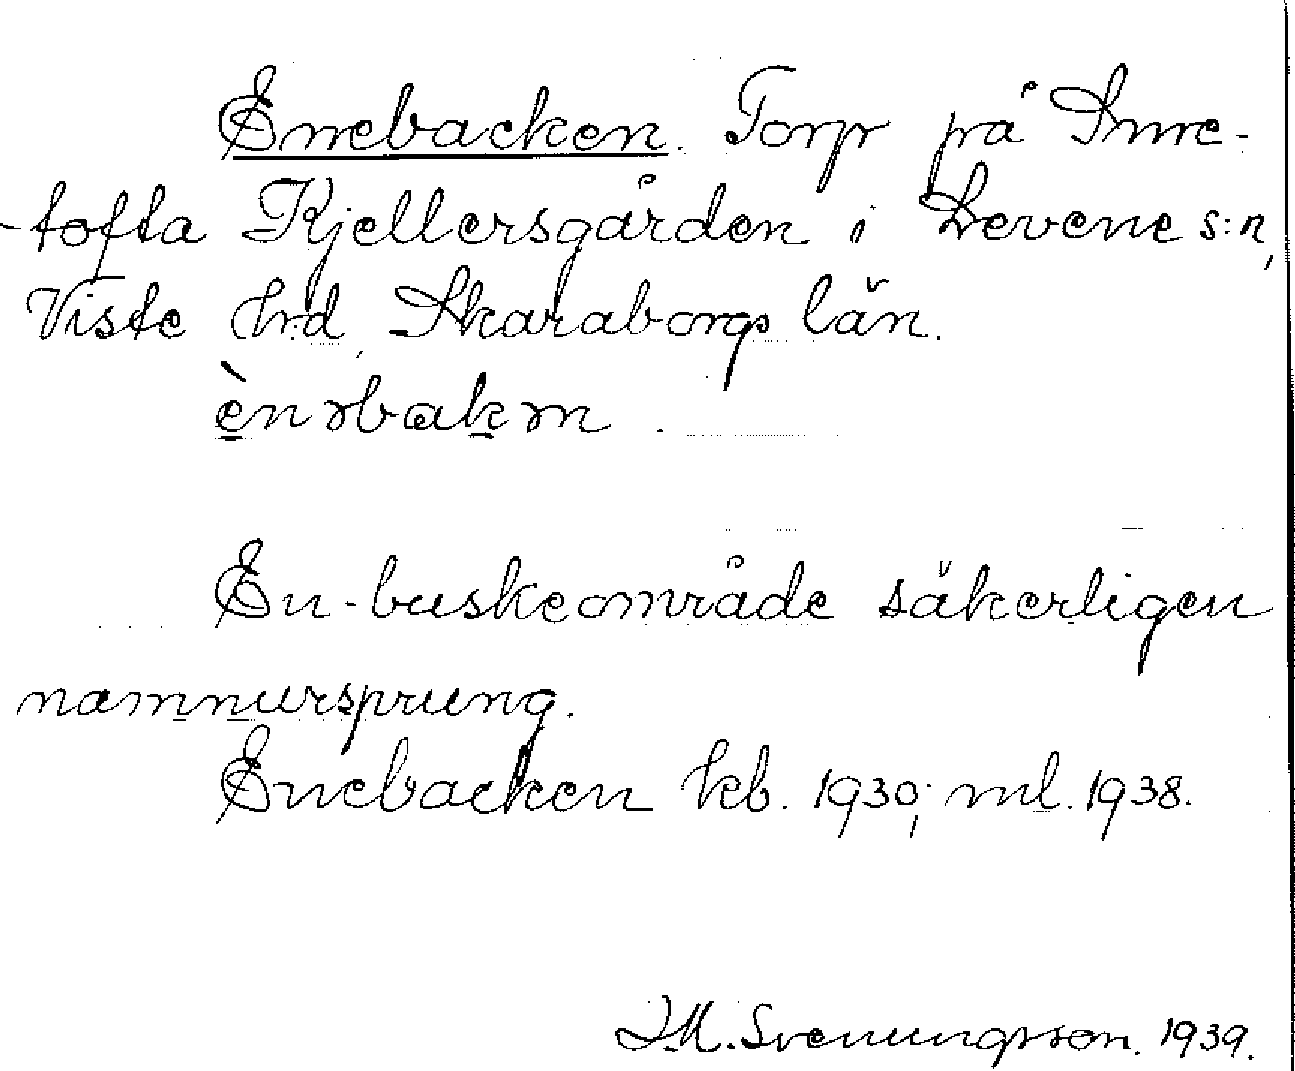 Enebacken. Torp på Smre-
-tofta Kjellersgården i Levene s:n,
Viste hrd, Skaraborgs län.
ènəbakən.
En-buskeområde säkerligen
namnursprung.
Enebacken kb. 1930; ml. 1938.
J.M. Svenungsson. 1939.